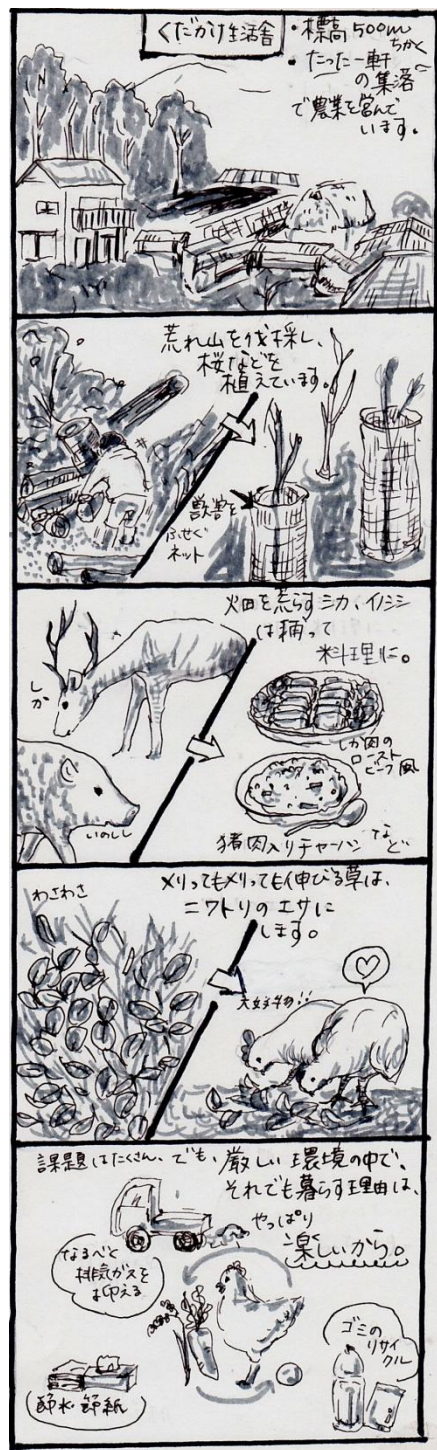 くだかけ生活舎
・標高500mちかく
・たった一軒
の集落
で農業を営んで
います。
荒れ山を伐採し、
桜などを
植えています。
獣害を
ふせぐ
ネット
畑を荒らすシカ、イノシシ
は捕って
料理に。
しか
いのしし
しか肉の
ロースト
ビーフ風
猪肉入りチャーハン など
わさわさ
刈っても刈っても伸びる草は、
ニワトリのエサに
します。
大好き!!
課題はたくさん、でも、厳しい環境の中で、
それでも暮らす理由は、
やっぱり
楽しいから。
なるべく
排気ガスを
抑える
ゴミの
リサイ
クル
節水 節紙